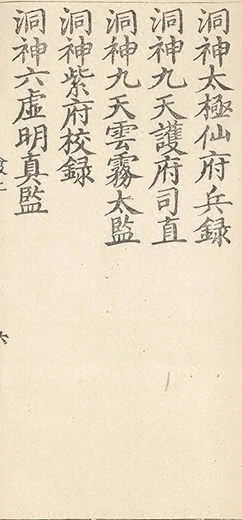 洞神太極仙府兵録
洞神九天護府司直
洞神九天雲霧太監
洞神紫府校録
洞神六虛明真監